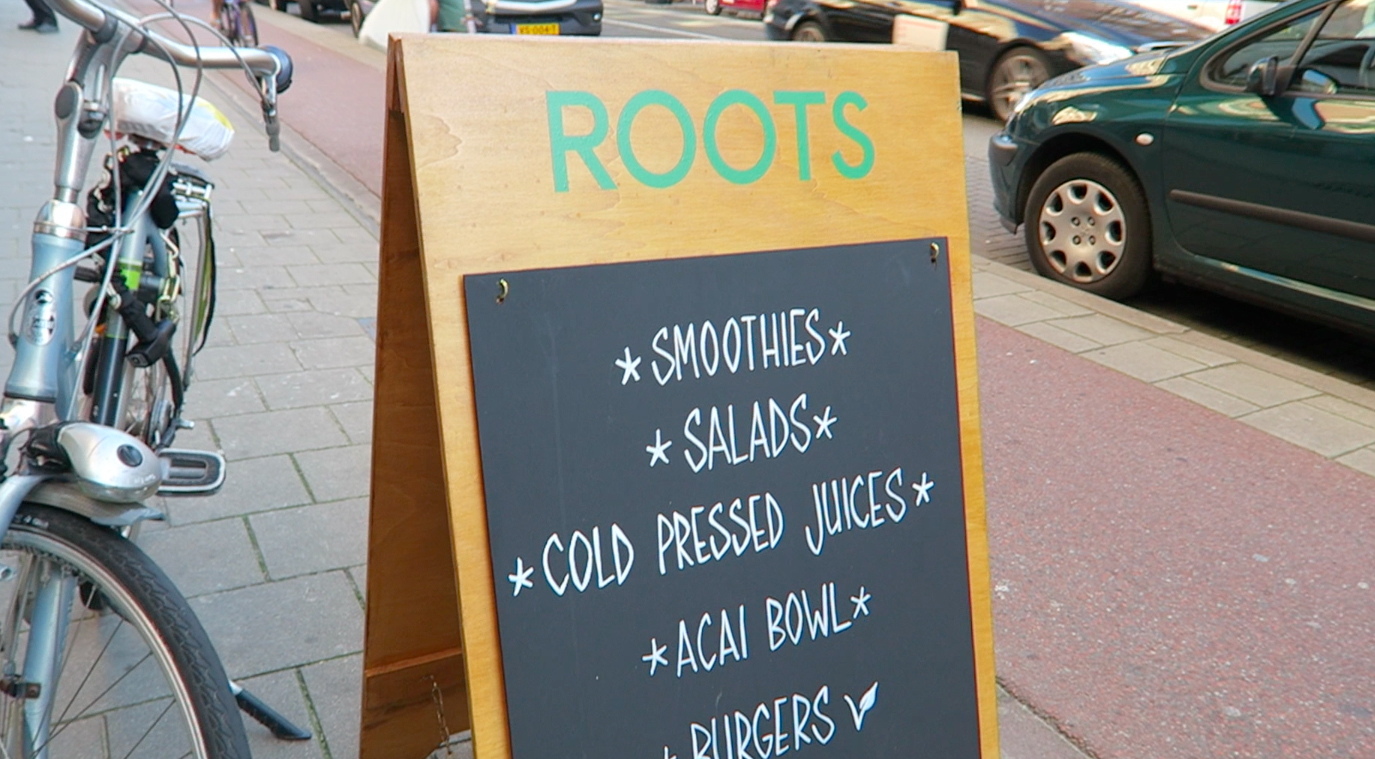 ROOTS
*SMOOTHIES*
*SALADS*
*COLD PRESSED JUICES*
*ACAI BOWL*
*BURGERS